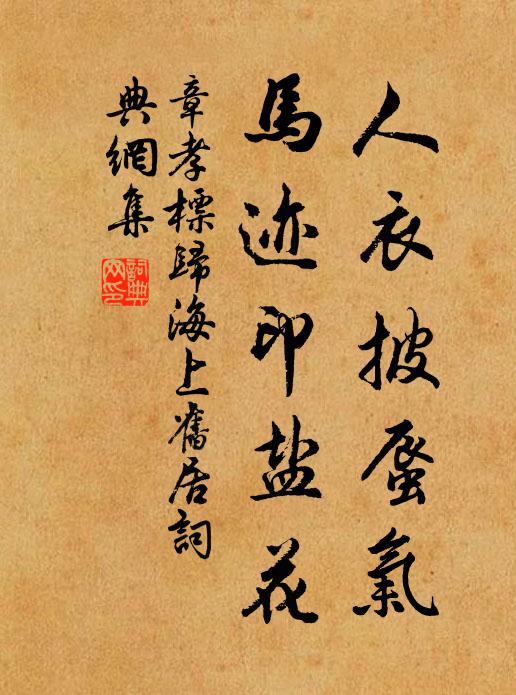 人衣披蜃氣
馬迹印盐花
章孝標歸海上舊居詞
典網集
詞典网印